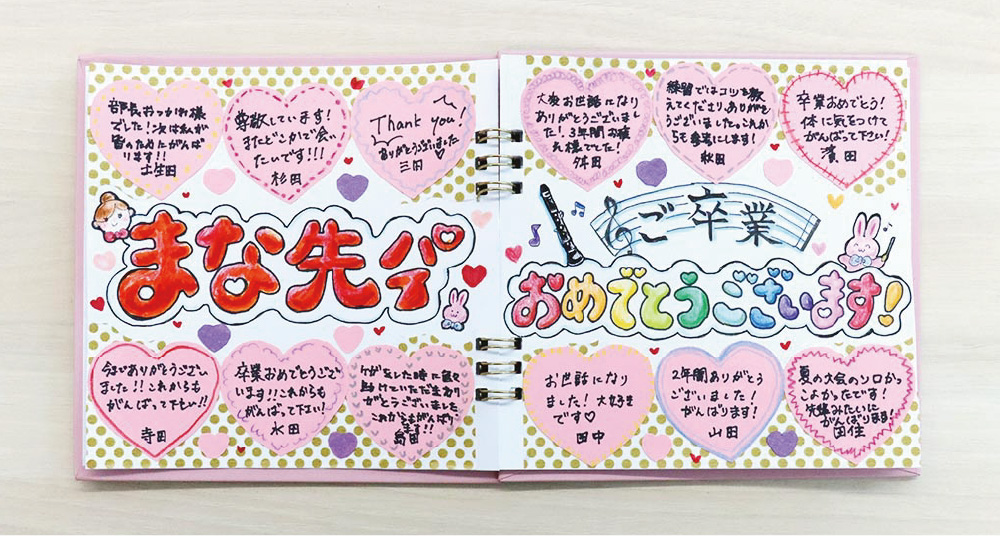 部長おつかれ様
でした!次は私が
皆のためにがんば
ります!!
土生田
尊敬しています!
またどこかで会い
たいです!!!
杉田
Thank you!
ありがとうございました
三田
まな先パイ
今までありがとうござい
ました!!これからも
がんばって下さい!!
寺田
卒業おめでとうござ
います!!これからも
がんばって下さい!
水田
ケガをした時に
助けていただきあり
がとうございました
これからもがんばり
ます!!
島田
大変お世話になり
ありがとうございまし
た!3年間お疲
れ様でした!
練習ではコツを教
えてくださり、ありがと
うございました。これか
らも参考にします!
秋田
卒業おめでとう!
体に気をつけて
がんばって下さい!
濱田
ご卒業
おめでとうございます!
お世話になり
ました!大好き
です♡
田中
2年間ありがとう
ございました!
がんばります!
山田
夏の大会のソロかっ
こよかったです!
先輩みたいに
がんばります!